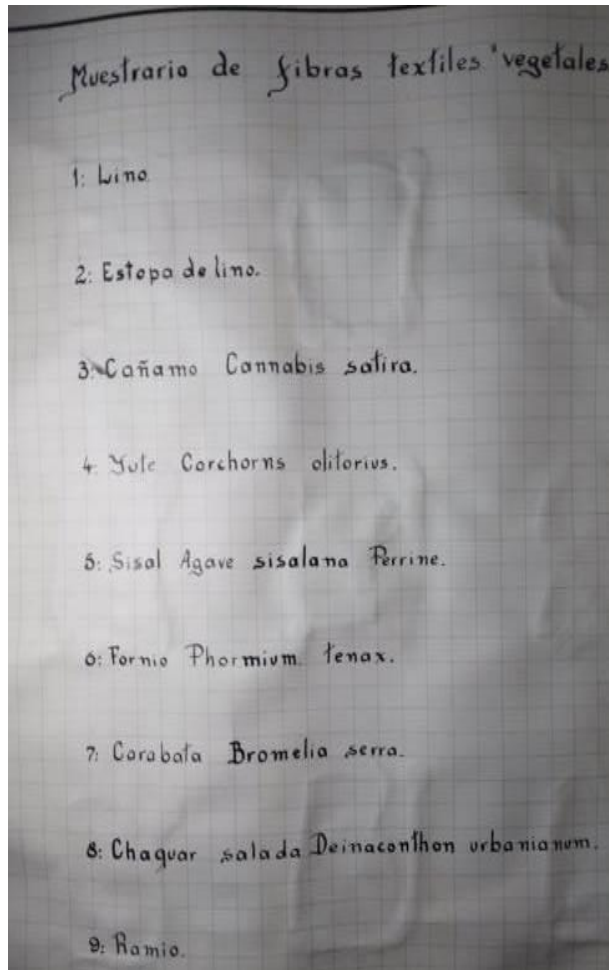 Muestrario de fibras textiles vegetales
1: Lino.
2: Estopa de lino.
3: Cañamo Cannabis satira.
4: Yute Corchorns olitorius.
5: Sisal Agave sisalana Perrine.
6: Fornio Phormium tenax.
7: Carabata Bromelia serra.
8: Chaguar salada Deinaconthon urbanianum.
9: Ramio.